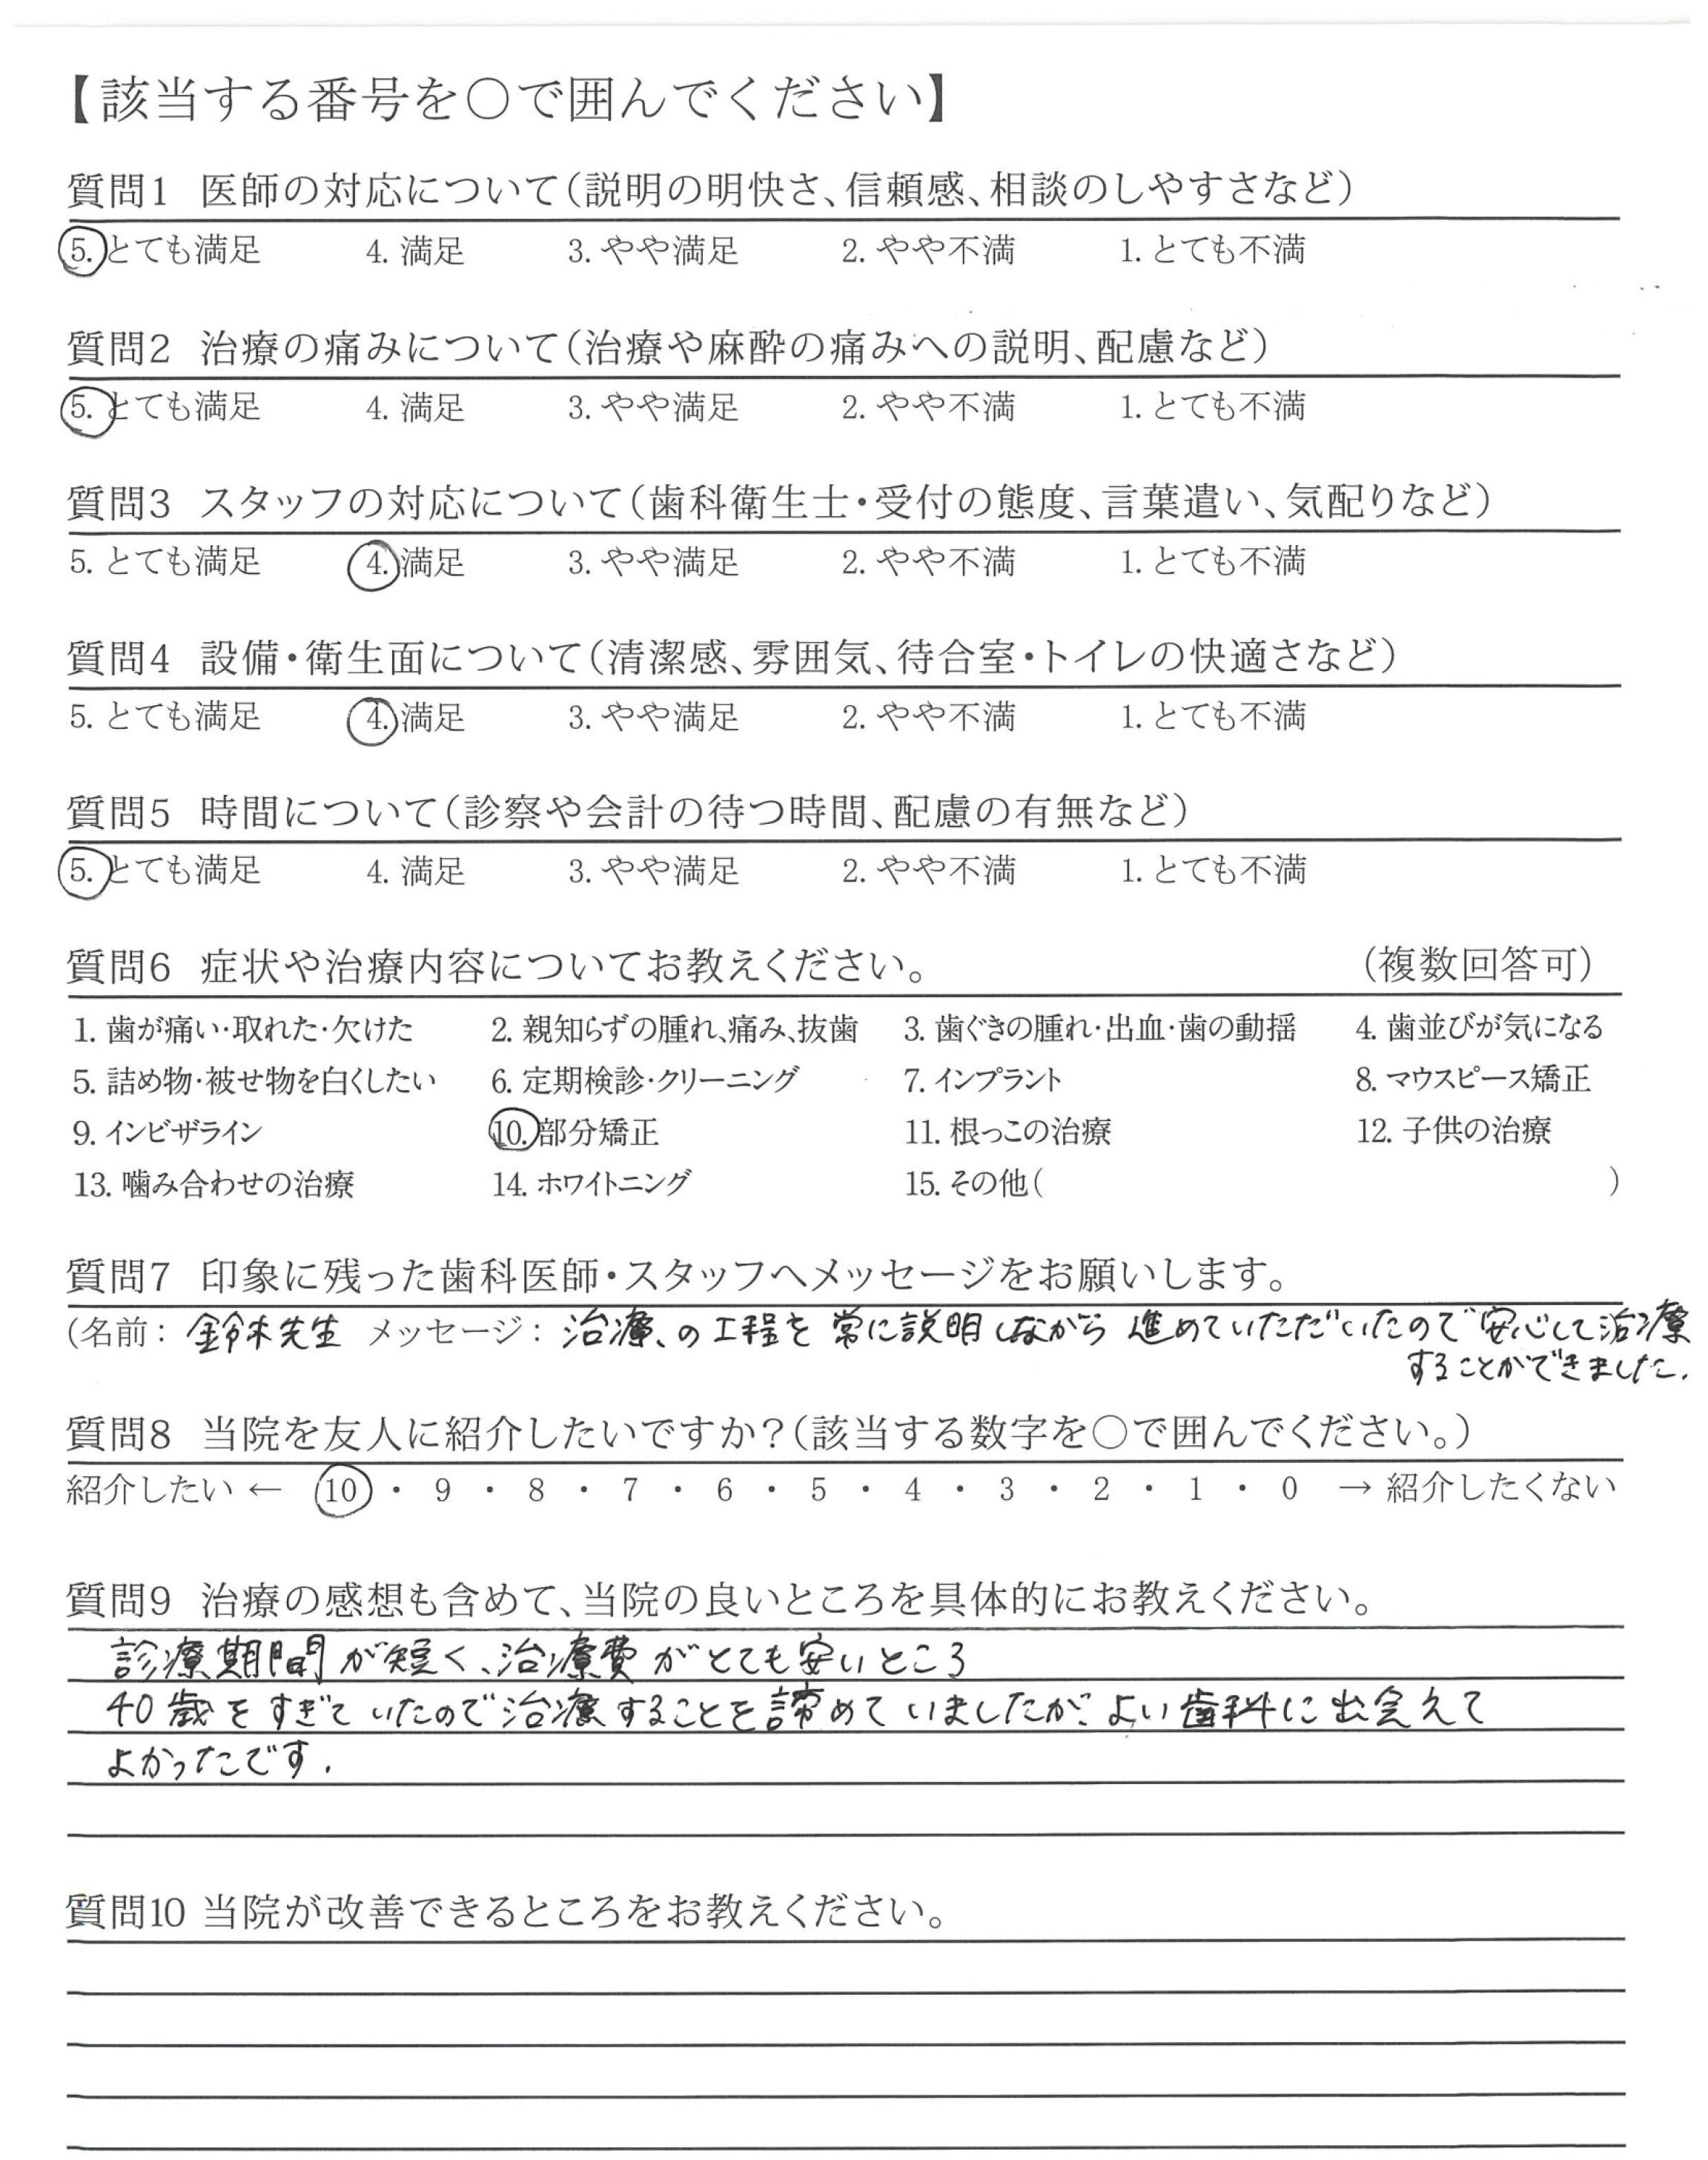 【該当する番号を○で囲んでください】
質問1 医師の対応について（説明の明快さ、信頼感、相談のしやすさなど）
5. とても満足 4. 満足 3. やや満足 2. やや不満 1. とても不満
質問2 治療の痛みについて（治療や麻酔の痛みへの説明、配慮など）
5. とても満足 4. 満足 3. やや満足 2. やや不満 1. とても不満
質問3 スタッフの対応について（歯科衛生士・受付の態度、言葉遣い、気配りなど）
5. とても満足 4. 満足 3. やや満足 2. やや不満 1. とても不満
質問4 設備・衛生面について（清潔感、雰囲気、待合室・トイレの快適さなど）
5. とても満足 4. 満足 3. やや満足 2. やや不満 1. とても不満
質問5 時間について（診察や会計の待つ時間、配慮の有無など）
5. とても満足 4. 満足 3. やや満足 2. やや不満 1. とても不満
質問6 症状や治療内容についてお教えください。 （複数回答可）
1. 歯が痛い・取れた・欠けた 2. 親知らずの腫れ、痛み、抜歯 3. 歯ぐきの腫れ・出血・歯の動揺 4. 歯並びが気になる
5. 詰め物・被せ物を白くしたい 6. 定期検診・クリーニング 7. インプラント 8. マウスピース矯正
9. インビザライン 10. 部分矯正 11. 根っこの治療 12. 子供の治療
13. 噛み合わせの治療 14. ホワイトニング 15. その他（ ）
質問7 印象に残った歯科医師・スタッフへメッセージをお願いします。
（名前： 鈴木先生 メッセージ： 治療、の工程を常に説明しながら進めていただいたので安心して治療
することができました.
質問8 当院を友人に紹介したいですか？（該当する数字を○で囲んでください。）
紹介したい ← 10 ・ 9 ・ 8 ・ 7 ・ 6 ・ 5 ・ 4 ・ 3 ・ 2 ・ 1 ・ 0 → 紹介したくない
質問9 治療の感想も含めて、当院の良いところを具体的にお教えください。
診療期間が短く、治療費がとても安いところ
40歳をすぎていたので治療することを諦めていましたが、よい歯科に出会えて
よかったです.
質問10 当院が改善できるところをお教えください。